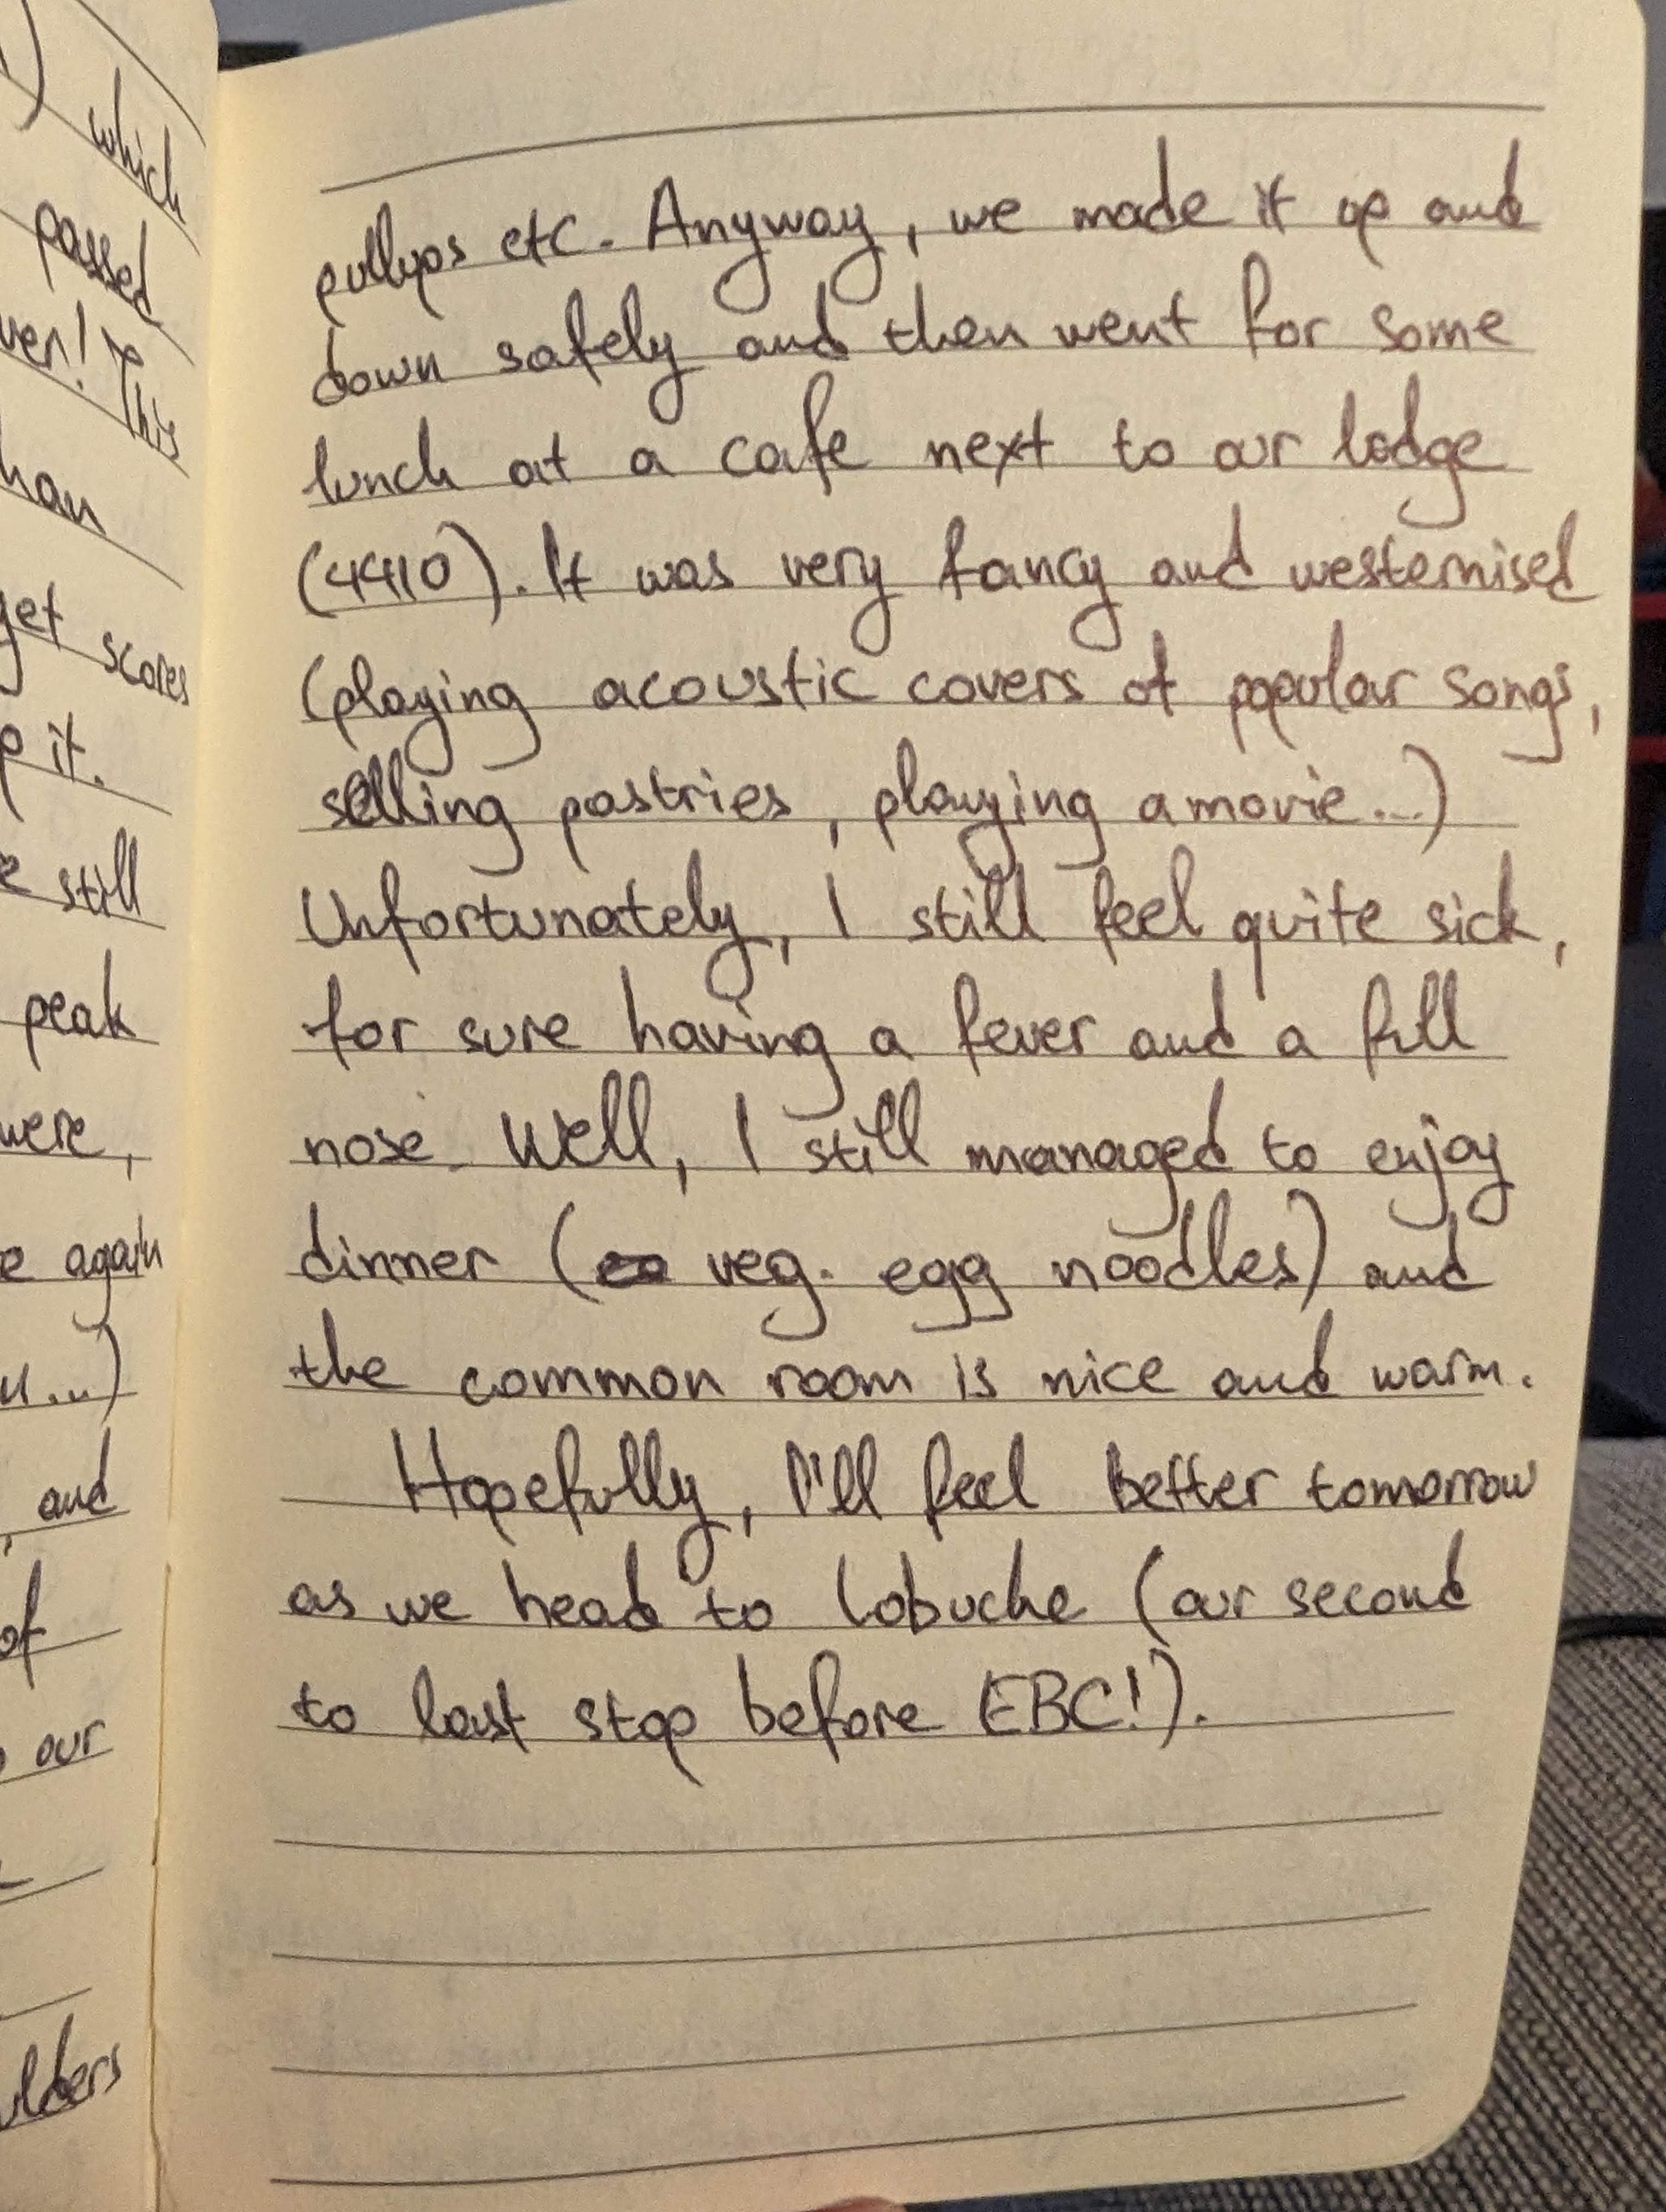 ) which
passed
ver! This
han
get scores
p it.
e still
peak
were,
e again
u...)
, and
of
our
ulders
pullups etc. Anyway, we made it up and
down safely and then went for some
lunch at a cafe next to our lodge
(4410). It was very fancy and westernised
(playing acoustic covers of popular songs,
selling pastries, playing a movie...)
Unfortunately, I still feel quite sick,
for sure having a fever and a full
nose. Well, I still managed to enjoy
dinner (veg. egg noodles) and
the common room is nice and warm.
Hopefully, I'll feel better tomorrow
as we head to Lobuche (our second
to last stop before EBC!).